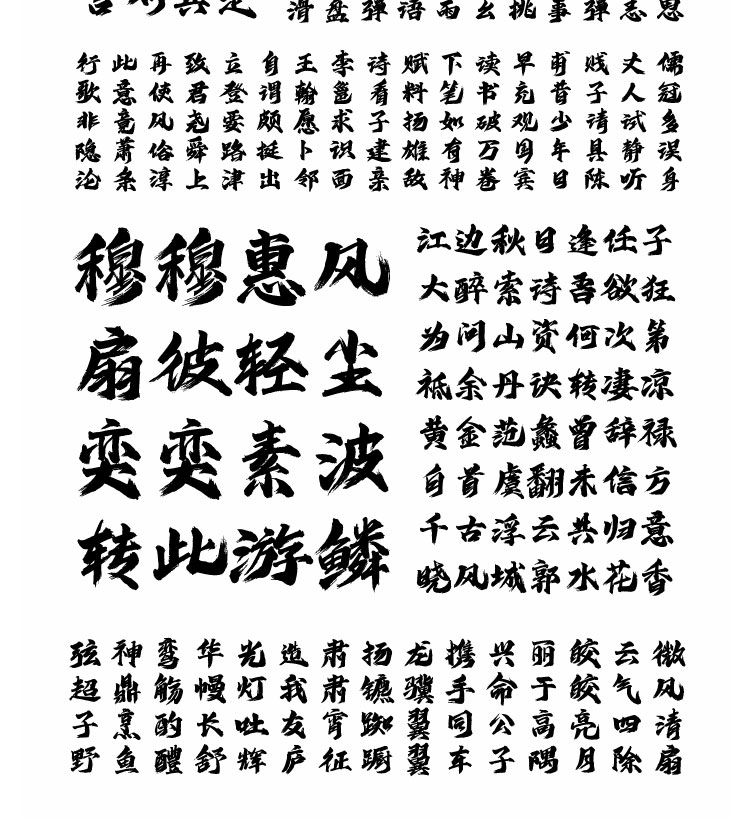 滑盘弹语雨幺挑事弹志思
儒冠多误身
丈人试静听
贱子请具陈
甫昔少年日
早充观国宾
读书破万卷
下笔如有神
赋料扬雄敌
诗看子建亲
李邕求识面
王翰愿卜邻
自谓颇挺出
立登要路津
致君尧舜上
再使风俗淳
此意竟萧条
行歌非隐沦
穆穆惠风
扇彼轻尘
奕奕素波
转此游鳞
江边秋日逢任子
大醉索诗吾欲狂
为问山资何次第
祗余丹诀转凄凉
黄金范蠡曾辞禄
自首虞翻未信方
千古浮云共归意
晓风城郭水花香
微风清扇
云气四除
皎皎亮月
丽于高隅
兴命公子
携手同车
龙骥翼翼
扬镳踟蹰
肃肃宵征
造我友庐
光灯吐辉
华幔长舒
弯觞酌醴
神鼎烹鱼
弦超子野